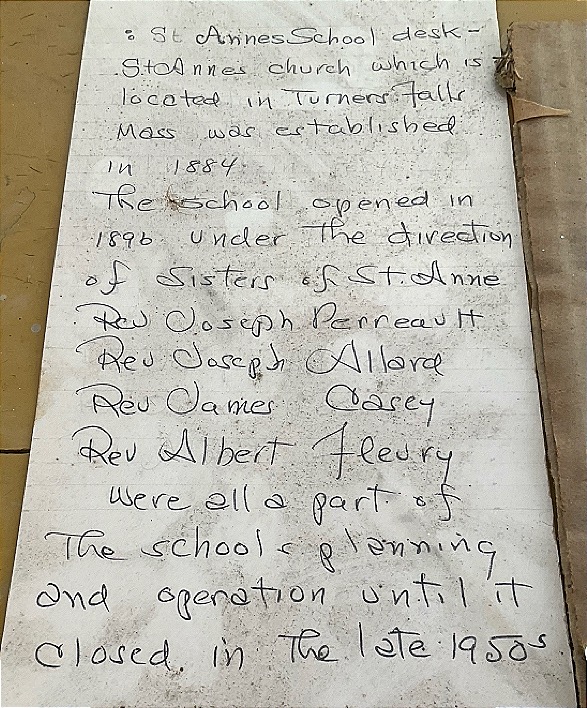 : St Annes School desk -
St Annes church which is
located in Turners Falls
Mass was established
in 1884
The school opened in
1896 under the direction
of Sisters of St. Anne
Rev Joseph Perreault
Rev Joseph Allard
Rev James Casey
Rev Albert Fleury
were all a part of
The schools planning
and operation until it
closed. in the late 1950s